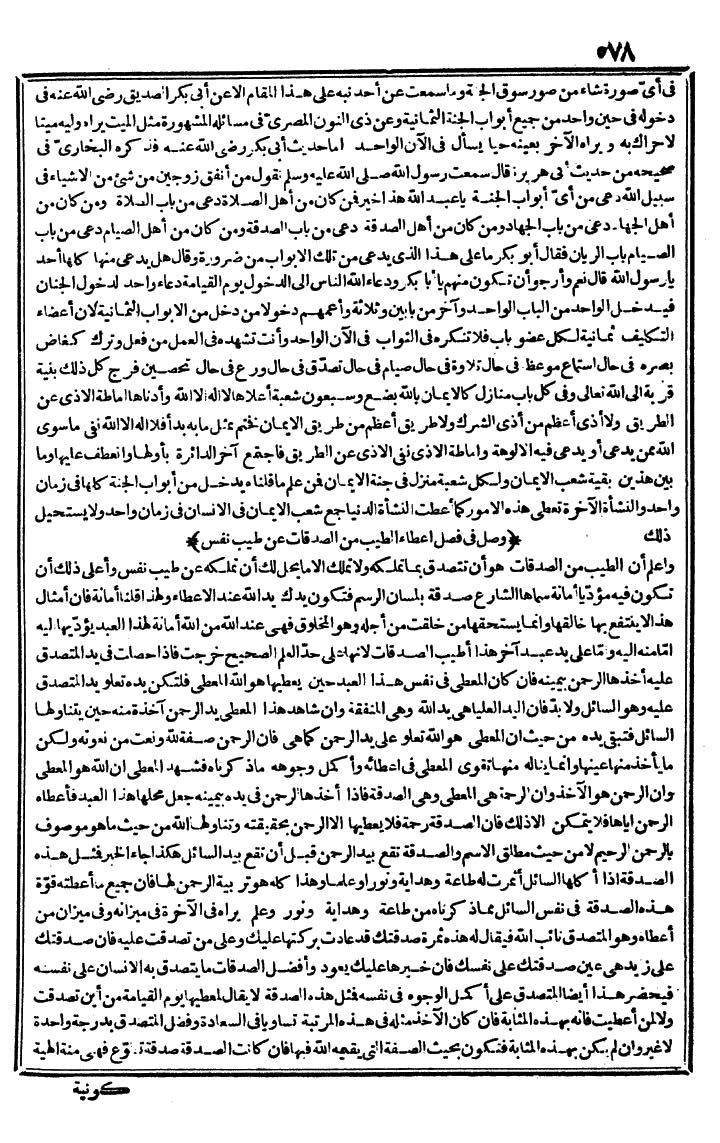 ٥٧٨
فى أىّ صورة شاء من صور سوق الجنة وما سمعت عن أحد نبه على هذا المقام الا عن أبى بكر الصديق رضى الله عنه فى
دخوله فى حين واحد من جميع أبواب الجنة الثمانية وعن ذى النون المصرىّ فى مسائله المشهورة مثل الميت يراه وليه ميتا
لا حراك به ويراه الآخر بعينه حيا يسأل فى الآن الواحد اما حديث أبى بكر رضى الله عنه فذكره البخارىّ فى
صحيحه من حديث أبى هريرة قال سمعت رسول الله صلى الله عليه وسلم يقول من أنفق زوجين من شئ من الاشياء فى
سبيل الله دعى من أىّ أبواب الجنة يا عبد الله هذا خير فمن كان من أهل الصلاة دعى من باب الصلاة ومن كان من
أهل الجهاد دعى من باب الجهاد ومن كان من أهل الصدقة دعى من باب الصدقة ومن كان من أهل الصيام دعى من باب
الصيام باب الريان فقال أبو بكر ما على هذا الذى يدعى من تلك الابواب من ضرورة وقال هل يدعى منها كلها أحد
يا رسول الله قال نعم وأرجو أن تكون منهم يا أبا بكر ودعاء الله الناس الى الدخول يوم القيامة دعاء واحد لدخول الجنان
فيدخل الواحد من الباب الواحد وآخر من بابين وثلاثة وأعمهم دخولا من دخل من الابواب الثمانية لان أعضاء
التكليف ثمانية لكل عضو باب فلا تنكره فى الثواب فى الآن الواحد وأنت تشهده فى العمل من فعل وترك كغاض
بصره فى حال استماع موعظة فى حال تلاوة فى حال صيام فى حال تصدّق فى حال ورع فى حال تحصين فرج كل ذلك بنية
قربة الى الله تعالى وفى كل باب منازل كالايمان بالله بضع وسبعون شعبة أعلاها لا اله الا الله وأدناها اماطة الاذى عن
الطريق ولا أذى أعظم من أذى الشرك ولا طريق أعظم من طريق الايمان نختم بمثل ما به بدأ فلا اله الا الله نفى ما سوى
الله ممن يدعى أو يدعى فيه الالوهة واماطة الاذى نفى الاذى عن الطريق فاجتمع آخر الدائرة بأولها وانعطف عليها وما
بين هذين بقية شعب الايمان ولكل شعبة منزل فى جنة الايمان فمن علم ما قلناه يدخل من أبواب الجنة كلها فى زمان
واحد والنشأة الآخرة تعطى هذه الامور كما أعطت النشأة الدنيا جمع شعب الايمان فى الانسان فى زمان واحد ولا يستحيل
ذلك ﴿وصل فى فصل اعطاء الطيب من الصدقات عن طيب نفس﴾
واعلم أن الطيب من الصدقات هو أن تتصدق بما تملكه ولا تملك الا ما يحل لك أن تملكه عن طيب نفس وأعلى ذلك أن
تكون فيه مؤدّيا أمانة سماها الشارع صدقة بلسان الرسم فتكون يدك يد الله عند الاعطاء ولهذا قلنا أمانة فان أمثال
هذا لا ينتفع بها خالقها وانما يستحقها من خلقت من أجله وهو المخلوق فهى عند الله من الله أمانة لهذا العبد يؤدّيها اليه
امّا منه اليه وامّا على يد عبد آخر هذا أطيب الصدقات لانها على حدّ العلم الصحيح خرجت فاذا حصلت فى يد المتصدق
عليه أخذها الرحمن بيمينه فان كان المعطى فى نفس هذا العبد حين يعطيها هو الله المعطى فلتكن يده تعلو يد المتصدق
عليه وهو السائل ولا بدّ فان اليد العليا هى يد الله وهى المنفقة وان شاهد هذا المعطى يد الرحمن آخذة منه حين يتناولها
السائل فتبقى يده من حيث ان المعطى هو الله تعلو على يد الرحمن كما هى فان الرحمن صفة لله ونعت من نعوته ولكن
ما يأخذ منها عينها وانما يناله منها تقوى المعطى فى اعطائه وأكمل وجوهه ما ذكرناه فشهد المعطى ان الله هو المعطى
وان الرحمن هو الآخذ وان الرحمة هى المعطى وهى الصدقة فاذا أخذها الرحمن فى يده بيمينه جعل محلها هذا العبد فأعطاه
الرحمن اياها فلا يتمكن الا ذلك فان الصدقة رحمة فلا يعطيها الا الرحمن بحقيقته وتناولها الله من حيث ما هو موصوف
بالرحمن الرحيم لا من حيث مطلق الاسم والصدقة تقع بيد الرحمن قبل أن تقع بيد السائل هكذا جاء الخبر فمثل هذه
الصدقة اذا أكلها السائل أثمرت له طاعة وهداية ونورا وعلما وهذا كله هو تربية الرحمن لها فان جميع ما أعطته قوّة
هذه الصدقة فى نفس السائل مما ذكرناه من طاعة وهداية ونور وعلم يراه فى الآخرة فى ميزانه وفى ميزان من
أعطاه وهو المتصدق نائب الله فيقال له هذه ثمرة صدقتك قد عادت بركتها عليك وعلى من تصدقت عليه فان صدقتك
على زيد هى عين صدقتك على نفسك فان خيرها عليك يعود وأفضل الصدقات ما يتصدق به الانسان على نفسه
فيحضر هذا أيضا المتصدق على أكمل الوجوه فى نفسه فمثل هذه الصدقة لا يقال لمعطيها يوم القيامة من أين تصدقت
ولا لمن أعطيت فانه بهذه المثابة فان كان الآخذ مثله فى هذه المرتبة تساويا فى السعادة وفضل المتصدق بدرجة واحدة
لا غير وان لم يكن بهذه المثابة فتكون بحيث الصفة التى يقيمه الله فيها فان كانت الصدقة صدقة تطوّع فهى منة الهية
كونية